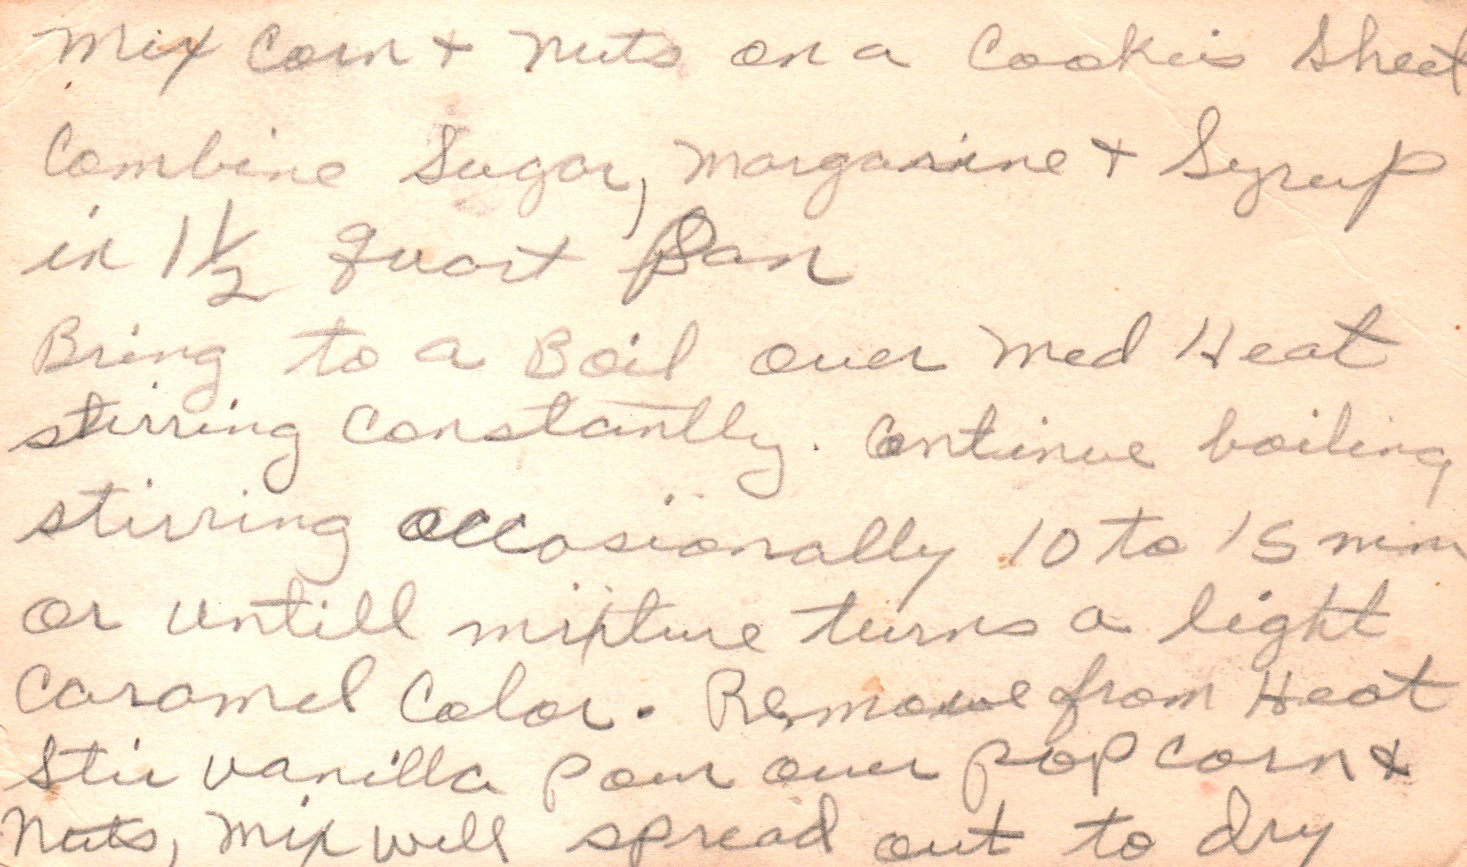 Mix Corn + Nuts on a Cookie Sheet
Combine Sugar, Margarine + Syrup
in 1 1/2 Quart Pan
Bring to a Boil over Med Heat
stirring constantly. Continue boiling
stirring occasionally 10 to 15 min
or untill mixture turns a light
Caramel Color. Remove from Heat
Stir vanilla pour over popcorn &
Nuts, Mix well spread out to dry